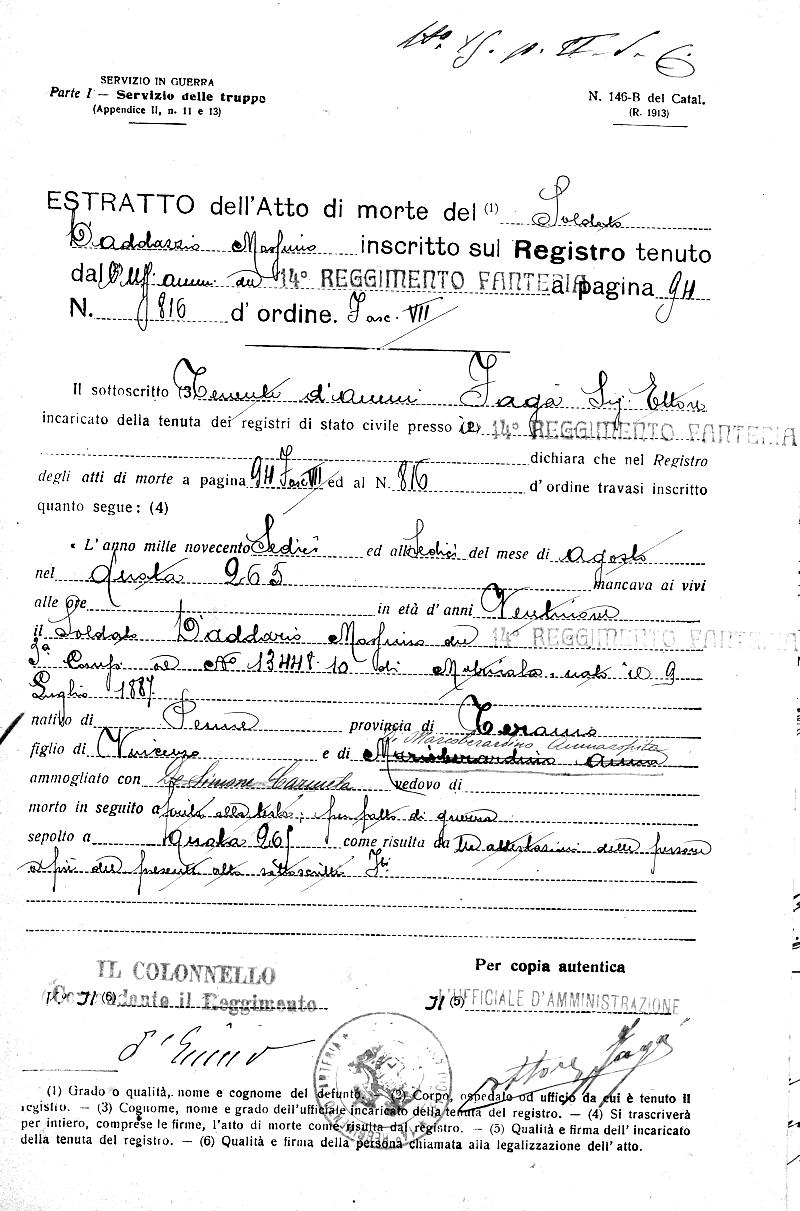 SERVIZIO IN GUERRA
Parte I — Servizio delle truppe
(Appendice II, n. 11 e 13)
N. 146-B del Catal.
(R. 1913)
ESTRATTO dell'Atto di morte del (1) Soldato
D'addazio Massimo inscritto sul Registro tenuto
dal Uff. amm. du 14° REGGIMENTO FANTERIA a pagina 94
N. 816 d' ordine. Fasc. VII
Il sottoscritto (3) Tenente d'amm Fagà Sig. Ettore
incaricato della tenuta dei registri di stato civile presso il (2) 14° REGGIMENTO FANTERIA
dichiara che nel Registro
degli atti di morte a pagina 94 Fasc VII ed al N. 816 d' ordine travasi inscritto
quanto segue: (4)
« L' anno mille novecento Sedici ed alli Sedici del mese di agosto
nel quota 265 mancava ai vivi
alle ore in età d' anni Ventinove
il Soldato D'addario Massimo du 14° REGGIMENTO FANTERIA
Comp al N° 13448 di Matricola, nato il 9
Luglio 1887
nativo di Penne provincia di Teramo
figlio di Vincenzo e di Marcoberardino Anna
Di Marcoberardino Annarosita
ammogliato con De Simone Carmela vedovo di
morto in seguito a ferita alla testa; per fatto di guerra
sepolto a quota 265 come risulta da tre attestazioni delle persone
a piè del presente atto sottoscritte Fti
IL COLONNELLO
Comandante il Reggimento
Il (6)
Per copia autentica
Il (5) L'UFFICIALE D'AMMINISTRAZIONE
Ettore Fagà
(1) Grado o qualità, nome e cognome del defunto. — (2) Corpo, ospedale od ufficio da cui è tenuto il
registro. — (3) Cognome, nome e grado dell'ufficiale incaricato della tenuta del registro. — (4) Si trascriverà
per intiero, comprese le firme, l'atto di morte come risulta dal registro. — (5) Qualità e firma dell' incaricato
della tenuta del registro. — (6) Qualità e firma della persona chiamata alla legalizzazione dell' atto.